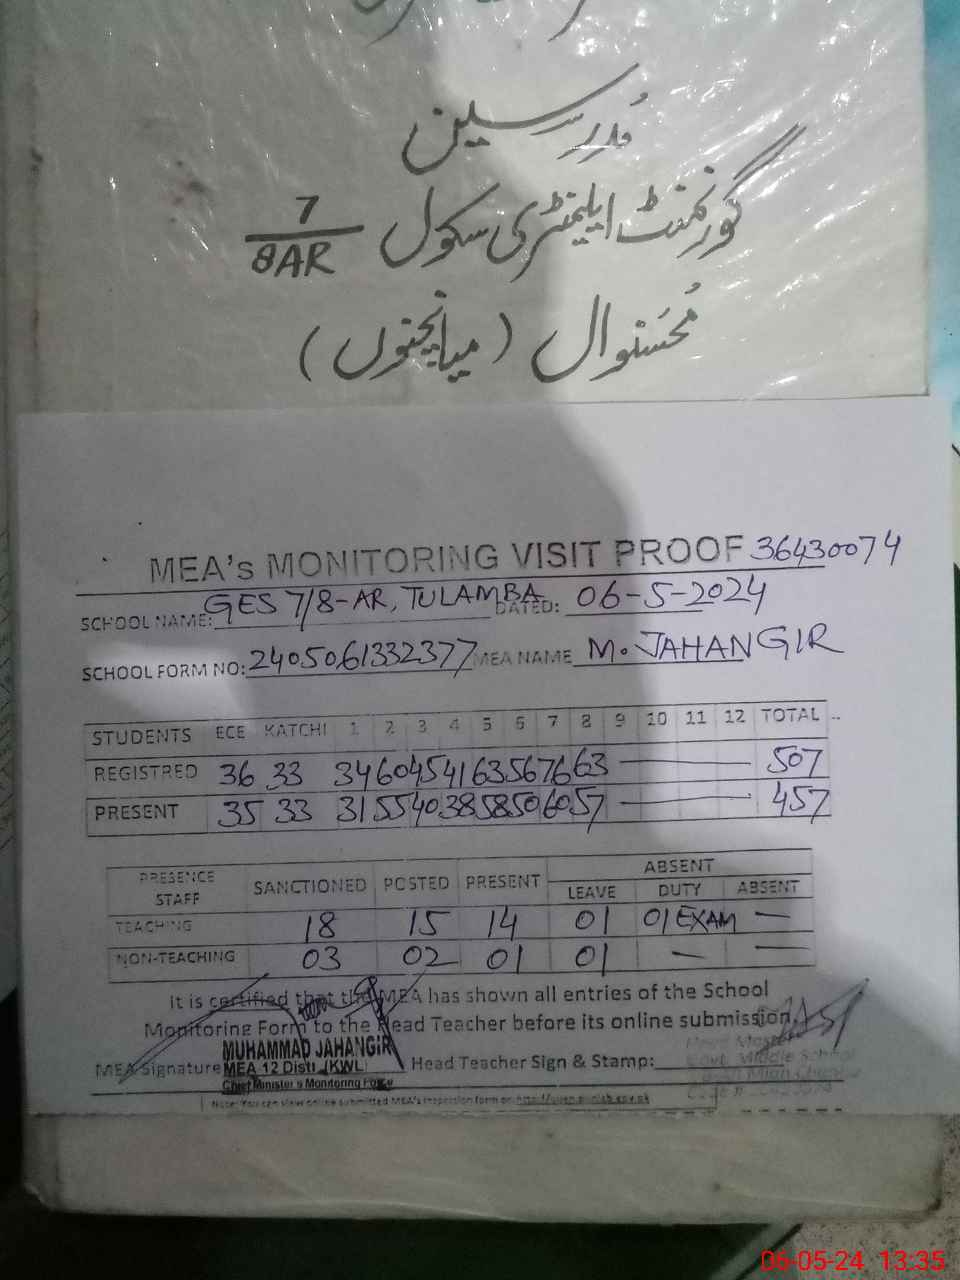 مُدرسین
گورنمنٹ ایلیمنٹری سکول 7/8AR
مُحسنوال (میانچنوں)
MEA's MONITORING VISIT PROOF 36430074
SCHOOL NAME: GES 7/8-AR, TULAMBA DATED: 06-5-2024
SCHOOL FORM NO: 2405061332377 MEA NAME M. JAHANGIR
STUDENTS ECE KATCHI 1 2 3 4 5 6 7 8 9 10 11 12 TOTAL
REGISTRED 36 33 34 60 45 41 63 56 76 63 — 507
PRESENT 35 33 31 55 40 38 58 50 60 57 — 457
PRESENCE STAFF SANCTIONED POSTED PRESENT ABSENT
LEAVE DUTY ABSENT
TEACHING 18 15 14 01 01 EXAM —
NON-TEACHING 03 02 01 01 — —
It is certified that the MEA has shown all entries of the School
Monitoring Form to the Head Teacher before its online submission.
MUHAMMAD JAHANGIR
MEA Signature MEA 12 Distt (KWL) Head Teacher Sign & Stamp:
Chief Minister's Monitoring Force
Head Master
Govt. Middle School
Note: You can view online submitted MEA's inspection form on
06-05-24 13:35